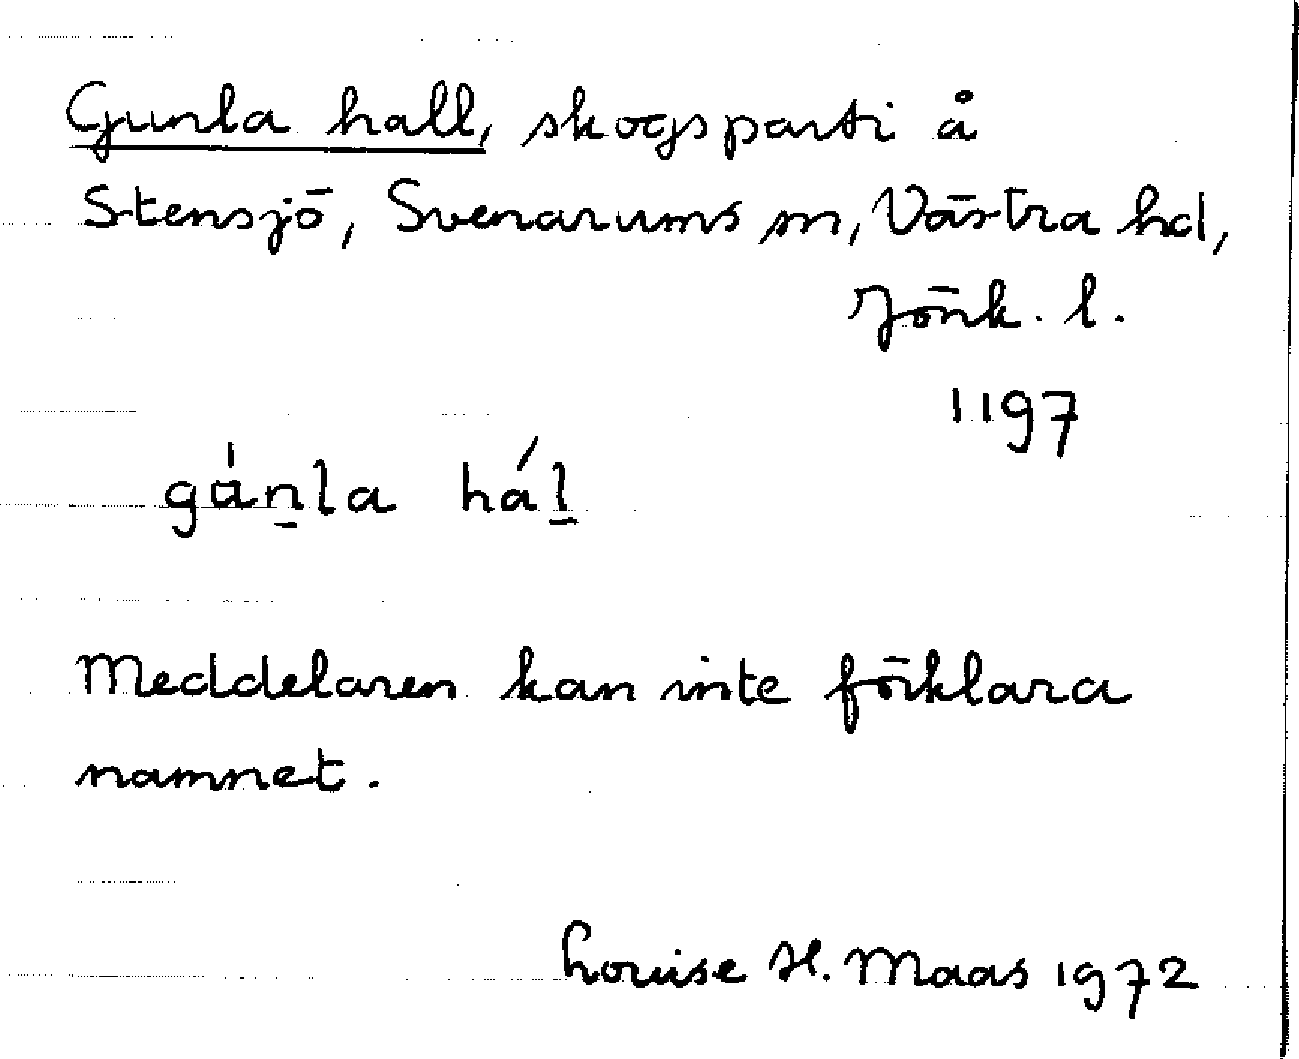 Gunla hall, skogsparti å
Stensjö, Svenarums sn, Västra hd,
Jönk. l.
1197
gȧn̲la hál̲
Meddelaren kan inte förklara
namnet.
Louise H. Maas 1972